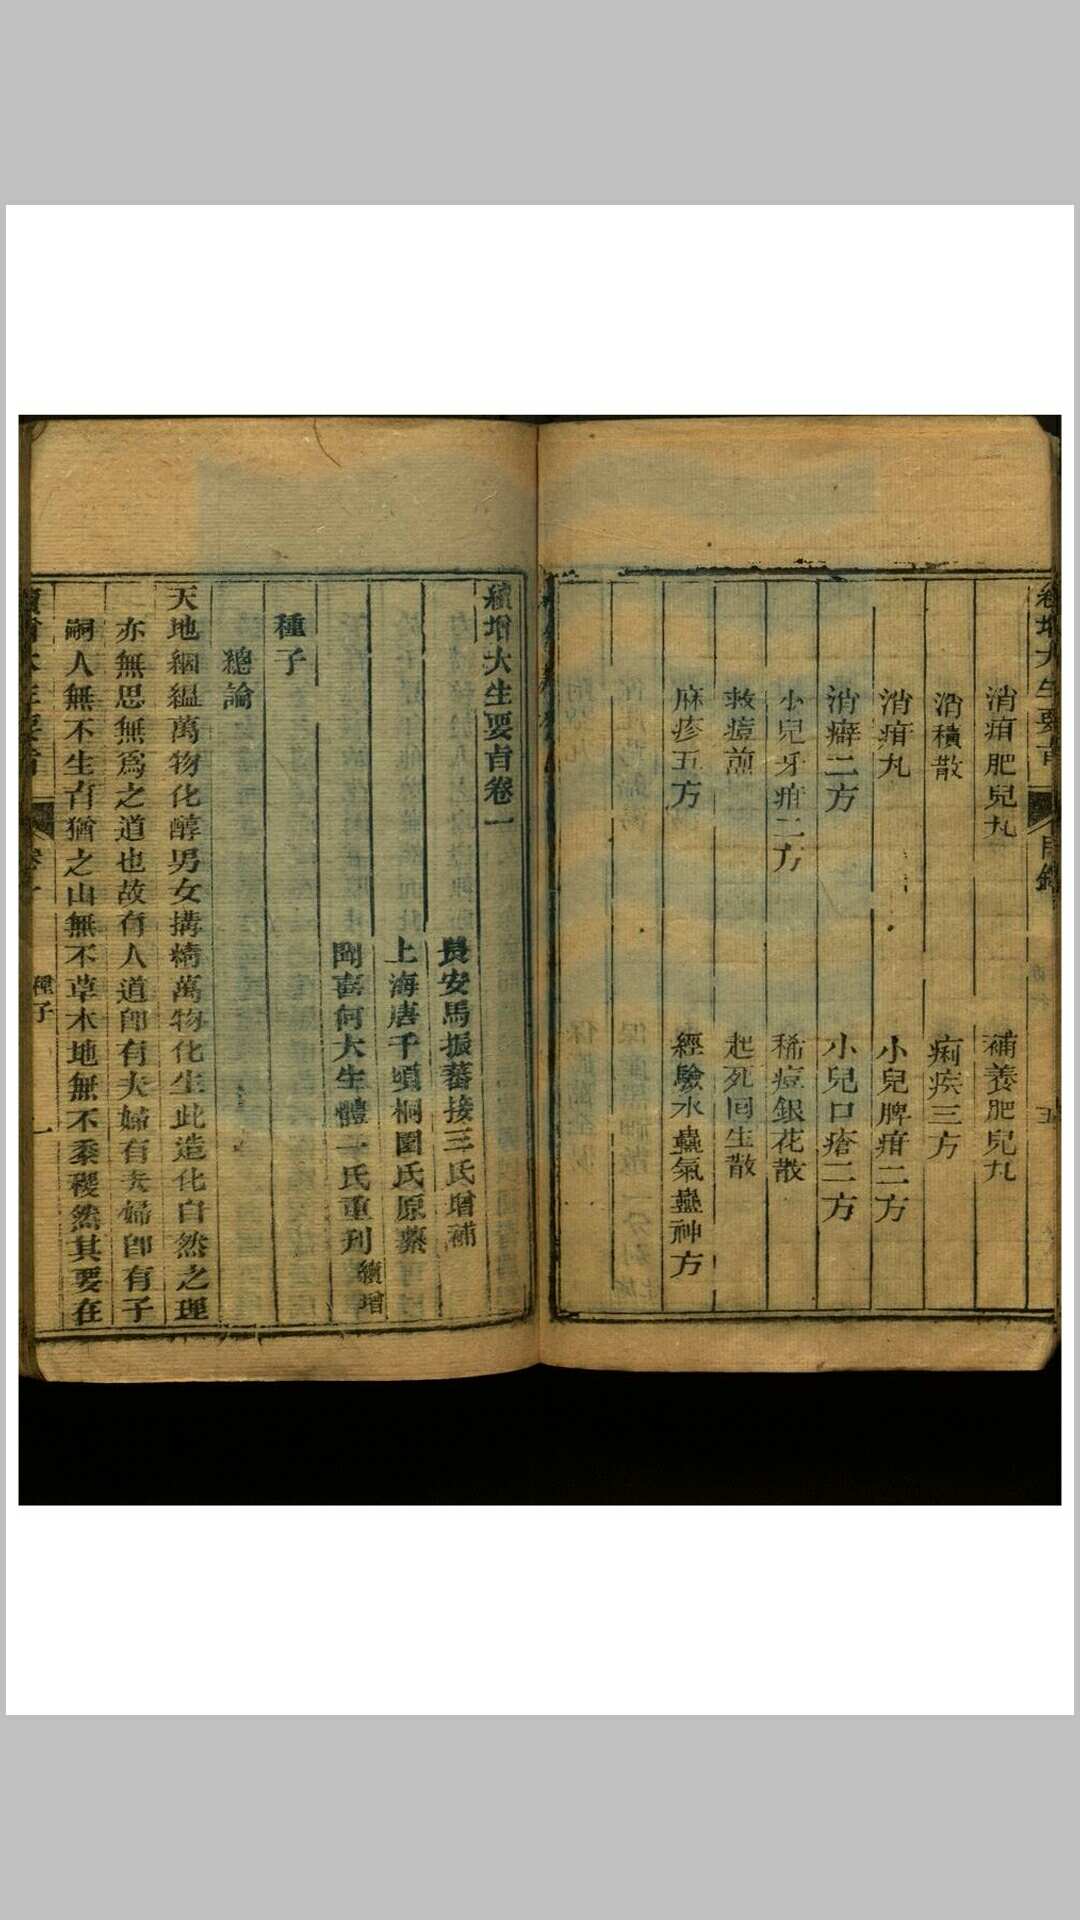 續增大生要旨
目錄
五
消疳肥兒丸
補養肥兒丸
消積散
痢疾三方
消疳丸
小兒脾疳二方
消癖二方
小兒口瘡二方
小兒牙疳二方
稀痘銀花散
救痘煎
起死回生散
麻疹五方
經驗水蠱氣蠱神方
續增大生要旨卷一
長安馬振蕃接三氏增補
上海唐千頃桐園氏原纂
聞喜何大生體一氏重刋
續增
種子
總論
天地絪縕萬物化醇男女搆精萬物化生此造化自然之理
亦無思無爲之道也故有人道卽有夫婦有夫婦卽有子
嗣人無不生育猶之山無不草木地無不黍稷然其要在
續增大生要旨
種子
一